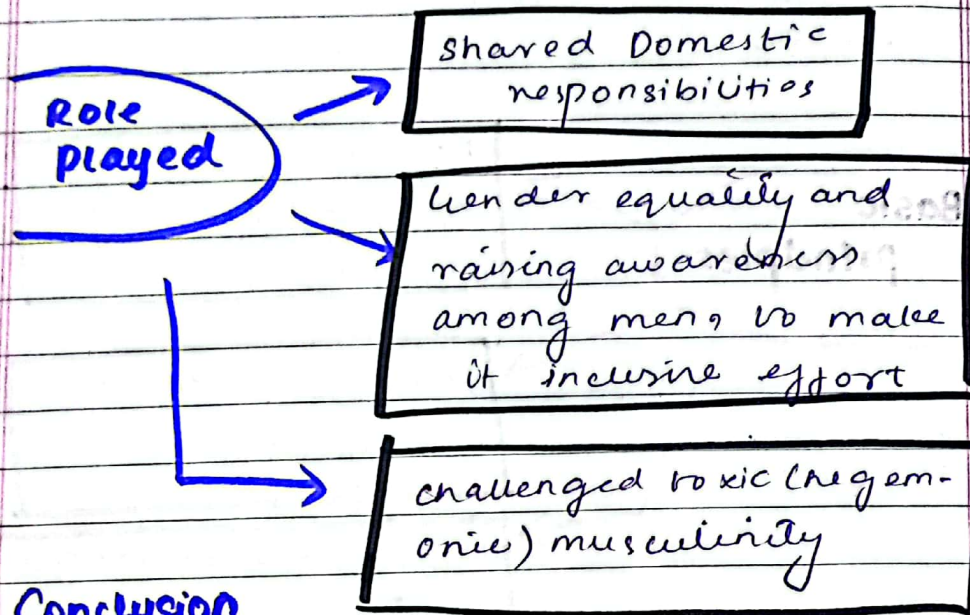 Role
played
shared Domestic
responsibilities
Gender equality and
raising awareness
among men, to make
it inclusive effort
challenged toxic (hegem-
onic) musculinity
Conclusion